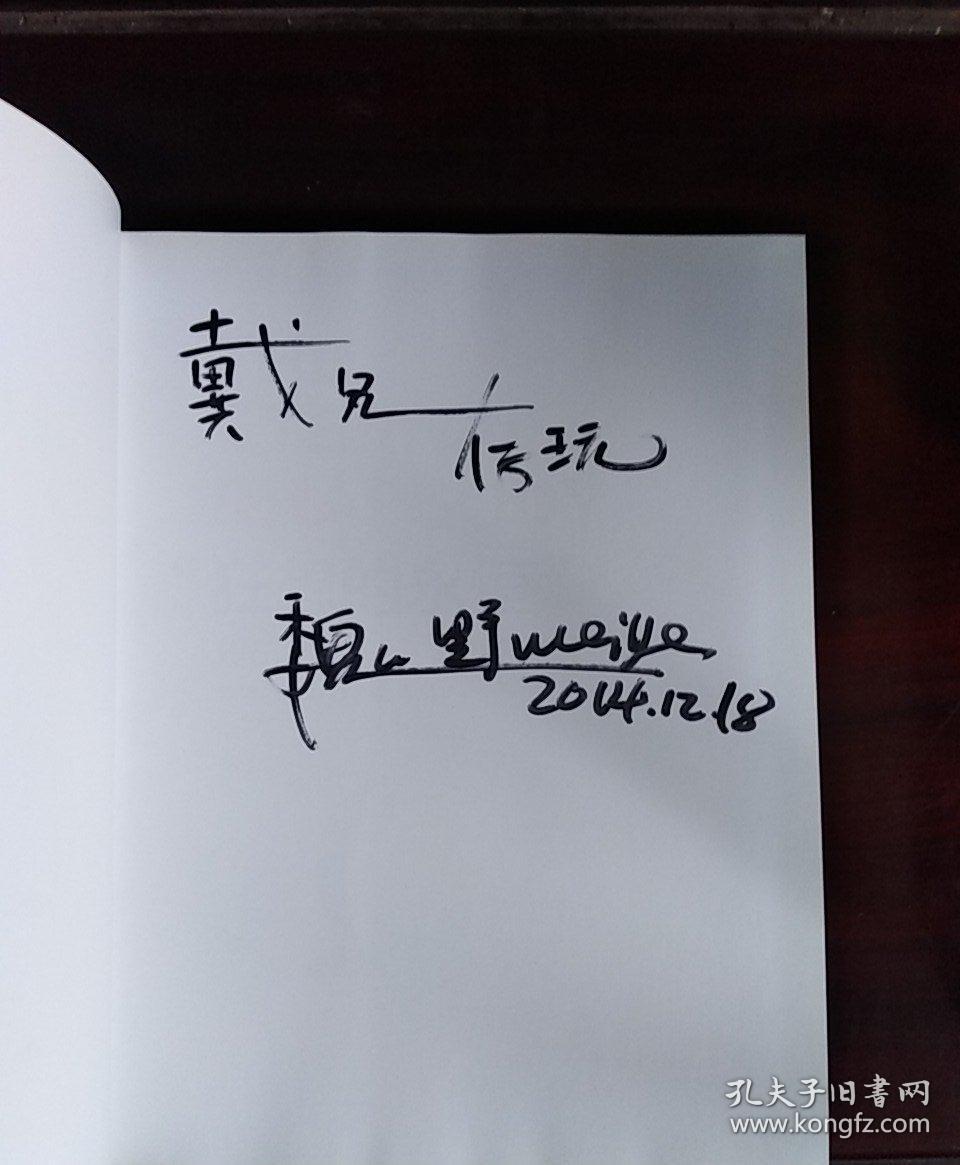 戴兄
传玩
魏野 weiye
2014.12.18
孔夫子旧书网
www.kongfz.com